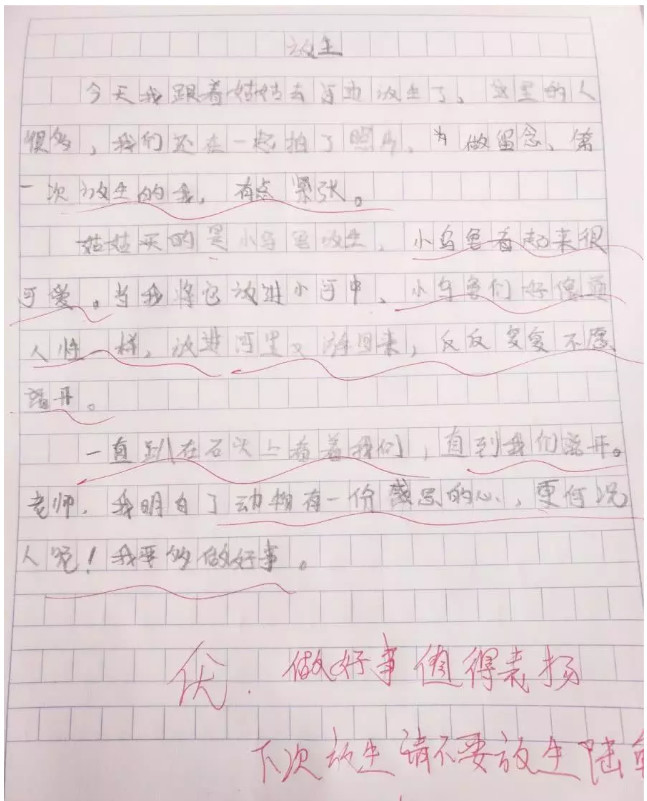 放生
今天我跟着姑姑去河边放生了，这里的人
很多，我们还在一起拍了照片，为做留念、第
一次放生的我，有点紧张。
姑姑买的是小乌龟放生，小乌龟看起来很
可爱。当我将它放进小河中、小乌龟们好像
人性一样，放进河里又游回来，反反复复不愿
离开。
一直趴在石头上看着我们，直到我们离开。
老师，我明白了动物有一份感恩的心，更何况
人呢！我要多做好事。
优. 做好事值得表扬
下次放生请不要放生陆龟